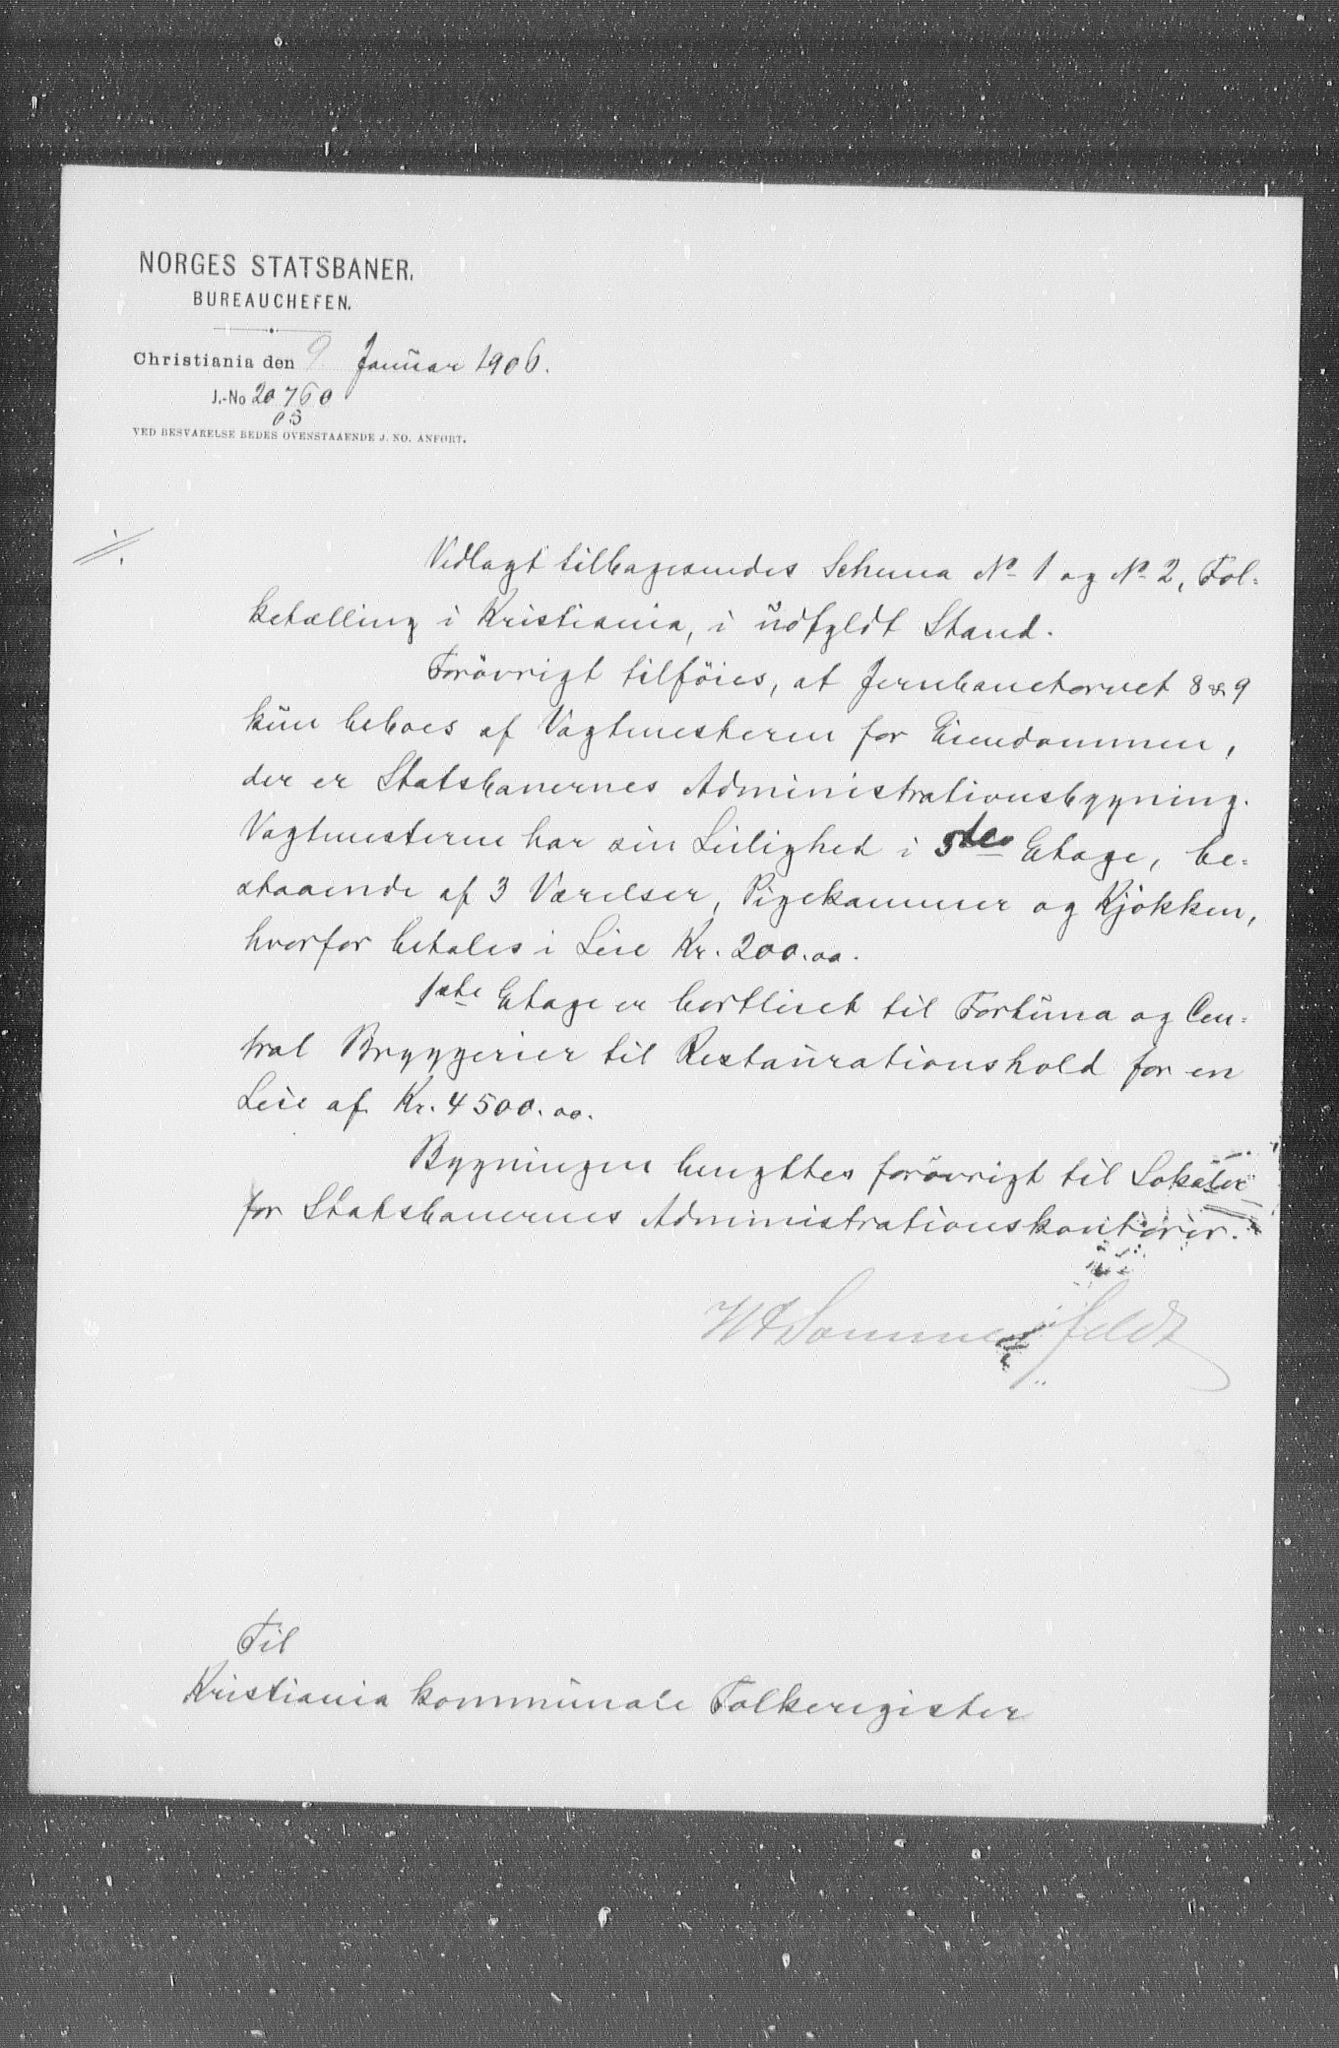 NORGES STATSBANER.
BUREAUCHEFEN.
Christiania den 9. Januar 1906.
J.-No 20760
05
VED BESVARELSE BEDES OVENSTAAENDE J. NO. ANFØRT.
Vedlagt tilbagesendes Schema No 1 og No 2, Fol-
ketælling i Kristiania, i udfyldt Stand.
Forøvrigt tilføies, at Jernbanetorvet 8 & 9
kun beboes af Vagtmesteren for Eiendommen,
der er Statsbanernes Administrationsbygning.
Vagtmesteren har sin Leilighed i 5te Etage, be-
staaende af 3 Værelser, Pigekammer og Kjøkken,
hvorfor betales i Leie Kr. 200.00.
1ste Etage er bortleiet til Fortuna og Cen-
tral Bryggerier til Restaurationshold for en
Leie af Kr. 4500.00.
Bygningen benyttes forøvrigt til Lokaler
for Statsbanernes Administrationskontorer.
Sommerfeldt
Til
Kristiania kommunale Folkeregister